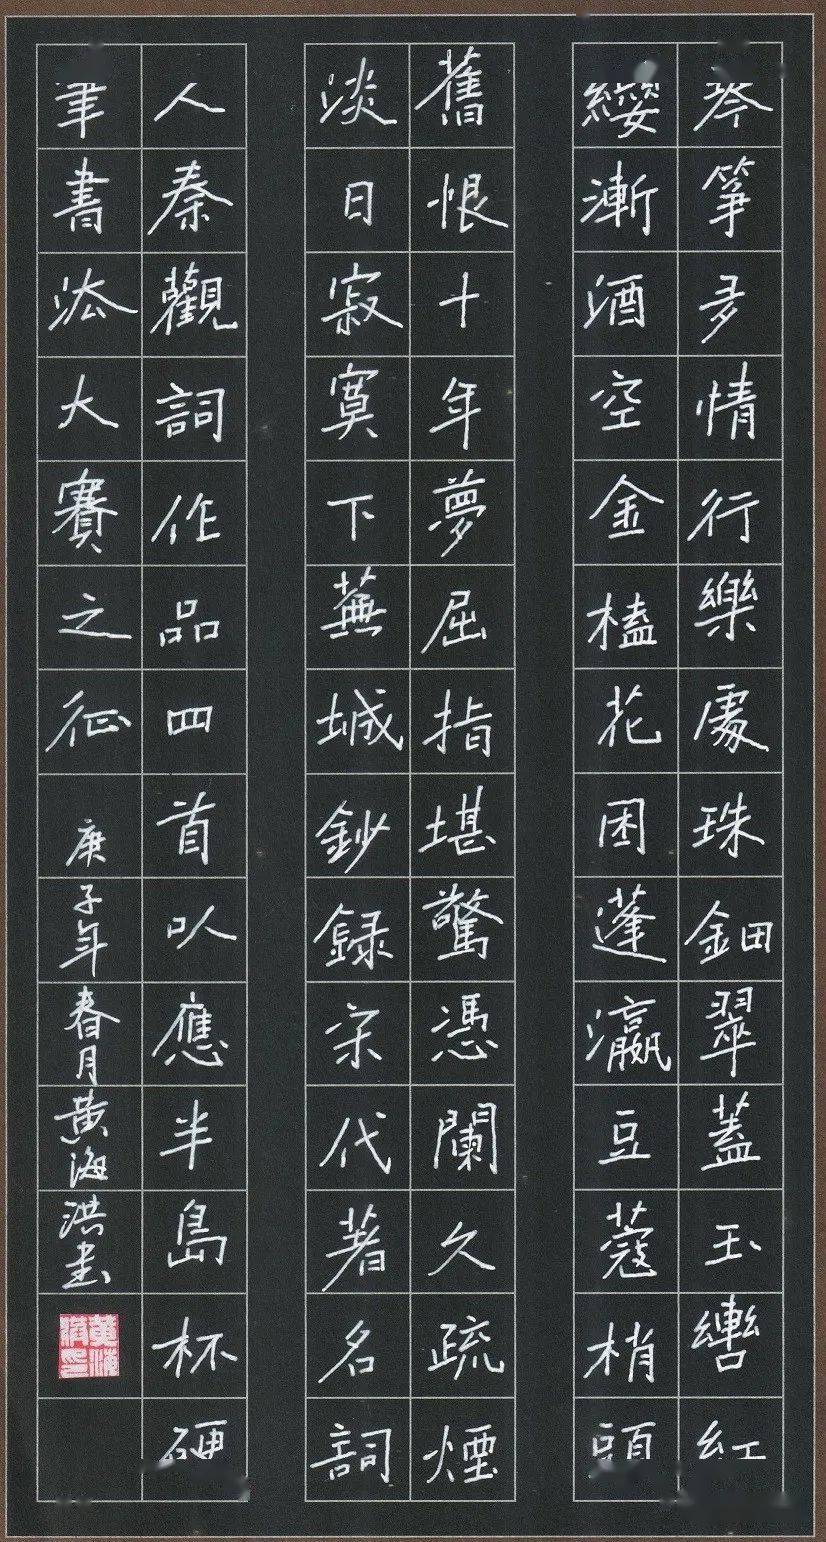 秦箏多情行樂處珠鈿翠蓋玉轡紅
纓漸酒空金榼花困蓬瀛豆蔻梢頭
舊恨十年夢屈指堪驚憑闌久疏煙
淡日寂寞下蕪城鈔錄宋代著名詞
人秦觀詞作品四首以應半島杯硬
筆書法大賽之征 庚子年春月黃海洪書
黃海洪印